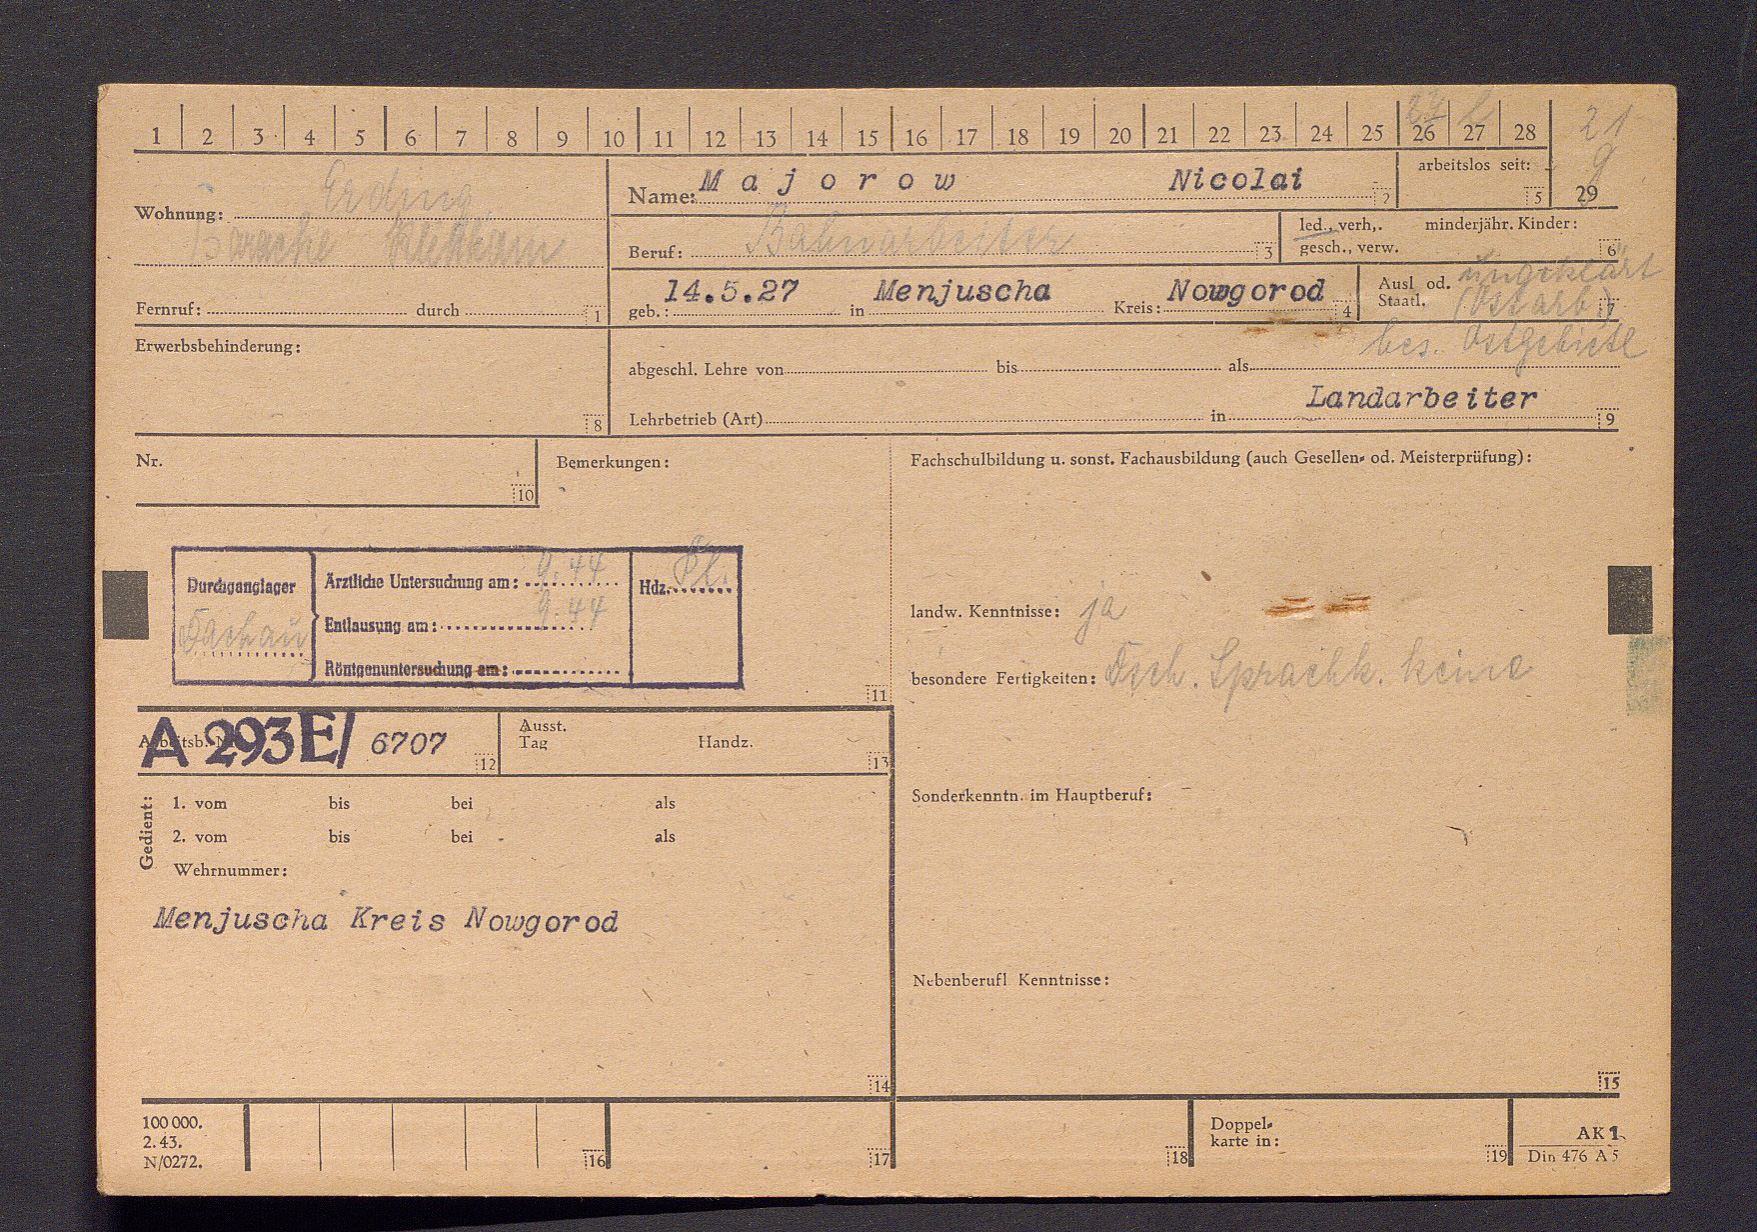 1 2 3 4 5 6 7 8 9 10 11 12 13 14 15 16 17 18 19 20 21 22 23 24 25 26 27 28
21
9
29
Wohnung: Erding
Baracke Klettham
Fernruf: durch 1
Name: Majorow Nicolai 2
arbeitslos seit: 5
Beruf: Bahnarbeiter 3
led., verh,. minderjähr. Kinder:
gesch., verw. 6
geb.: 14.5.27 in Menjuscha Kreis: Nowgorod 4
Ausl. od. ungeklärt
Staatl. (Ostarb) 7
bes. Ostgebiete
Erwerbsbehinderung:
8
abgeschl. Lehre von bis als
Landarbeiter
Lehrbetrieb (Art) in 9
Nr.
10
Bemerkungen:
Durchganglager
Dachau
Ärztliche Untersuchung am: 9.44
Entlausung am: 9.44
Röntgenuntersuchung am:
Hdz.
11
Fachschulbildung u. sonst. Fachausbildung (auch Gesellen- od. Meisterprüfung):
landw. Kenntnisse: ja
besondere Fertigkeiten: Dtsch. Sprachk. keine
Sonderkenntn. im Hauptberuf:
Nebenberufl Kenntnisse:
15
A 293E/ 6707
12
Ausst.
Tag Handz.
13
Gedient:
1. vom bis bei als
2. vom bis bei als
Wehrnummer:
Menjuscha Kreis Nowgorod
14
100 000.
2. 43.
N/0272.
16
17
18
Doppel-
karte in:
19
AK 1
Din 476 A 5